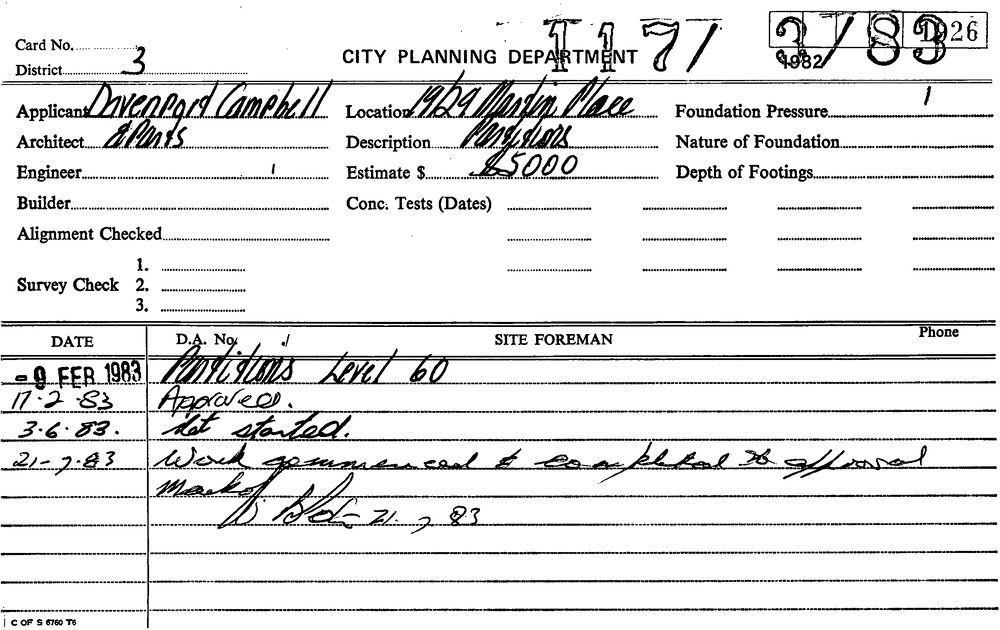 1171 3/83 1926
Card No.
CITY PLANNING DEPARTMENT 1982
District 3
Applicant Davenport Campbell Location 1929 Martin Place Foundation Pressure
Architect & Ptnrs Description Partitions Nature of Foundation
Engineer Estimate $ $5000 Depth of Footings
Builder Conc. Tests (Dates)
Alignment Checked
1.
Survey Check 2.
3.
DATE D.A. No. SITE FOREMAN Phone
-9 FEB 1983 Partitions Level 60
17.2.83 Approved.
3.6.83. Not started.
21-7.83 Work commenced & completed to approval
21.7.83
C OF S 6760 T6